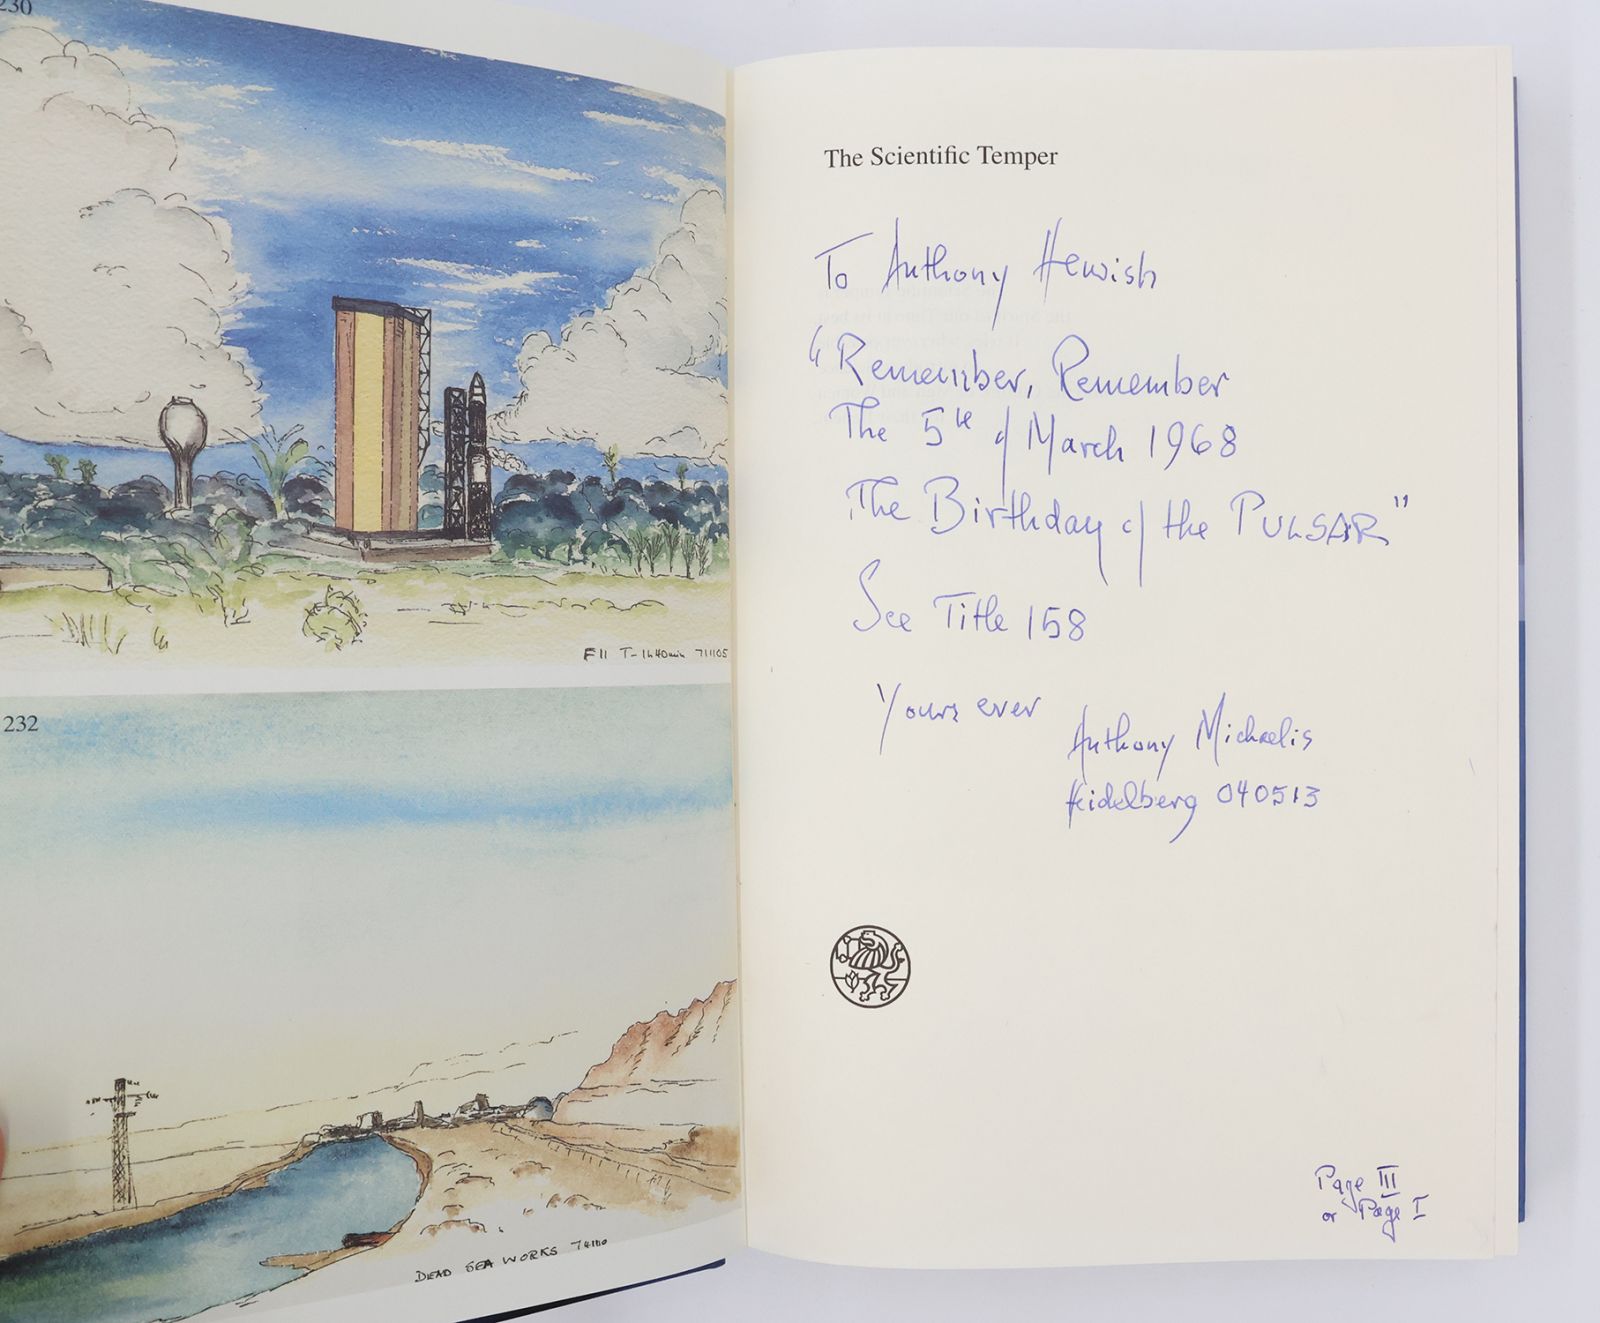 230
F11 T-1h40min 711105
232
DEAD SEA WORKS 741110
The Scientific Temper
To Anthony Hewish
"Remember, Remember
The 5th of March 1968
The Birthday of the PULSAR"
See Title 158
Yours ever
Anthony Michaelis
Heidelberg 040513
Page III
or Page I